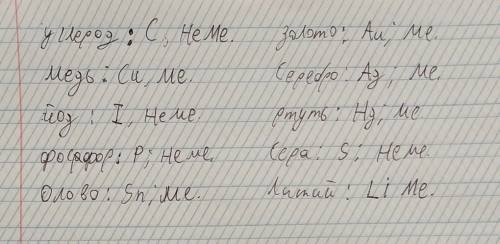 углерод: C; НеМе.
Медь: Cu, Ме.
йод: I, НеМе.
фосфор: P; НеМе.
Олово: Sn; Ме.
золото: Au; Ме.
Серебро: Ag; Ме.
ртуть: Hg; Ме
Сера: S; НеМе.
Литий: Li Ме.